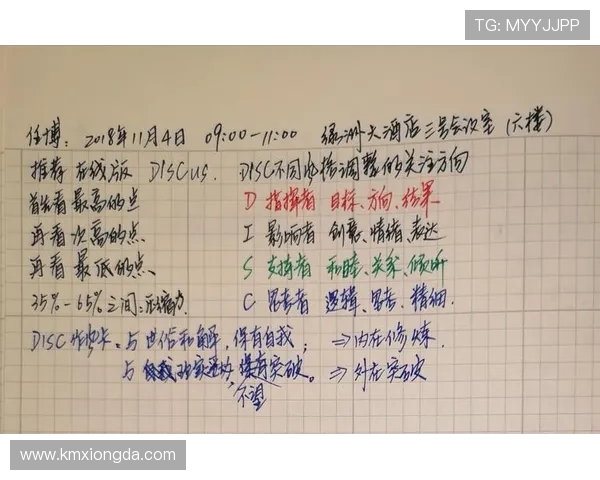 TG: MYYJJPP
任博: 2018年11月4日 09:00-11:00 绿洲大酒店三号会议室 (六楼)
推荐 在线版 DISCUS. DISC不同风格调整的关注方向
首先看最高的点 D 指挥者 目标、方向、结果
再看次高的点 I 影响者 创意、情绪、表达
再看最低的点、 S 支持者 和睦、关系、倾听
35%-65%之间: C 思考者 逻辑、思考、精细.
DISC 与世俗和解, 保有自我; ⇒内在修炼.
与 突破。 ⇒外在突破
不望
www.kmxiongda.com